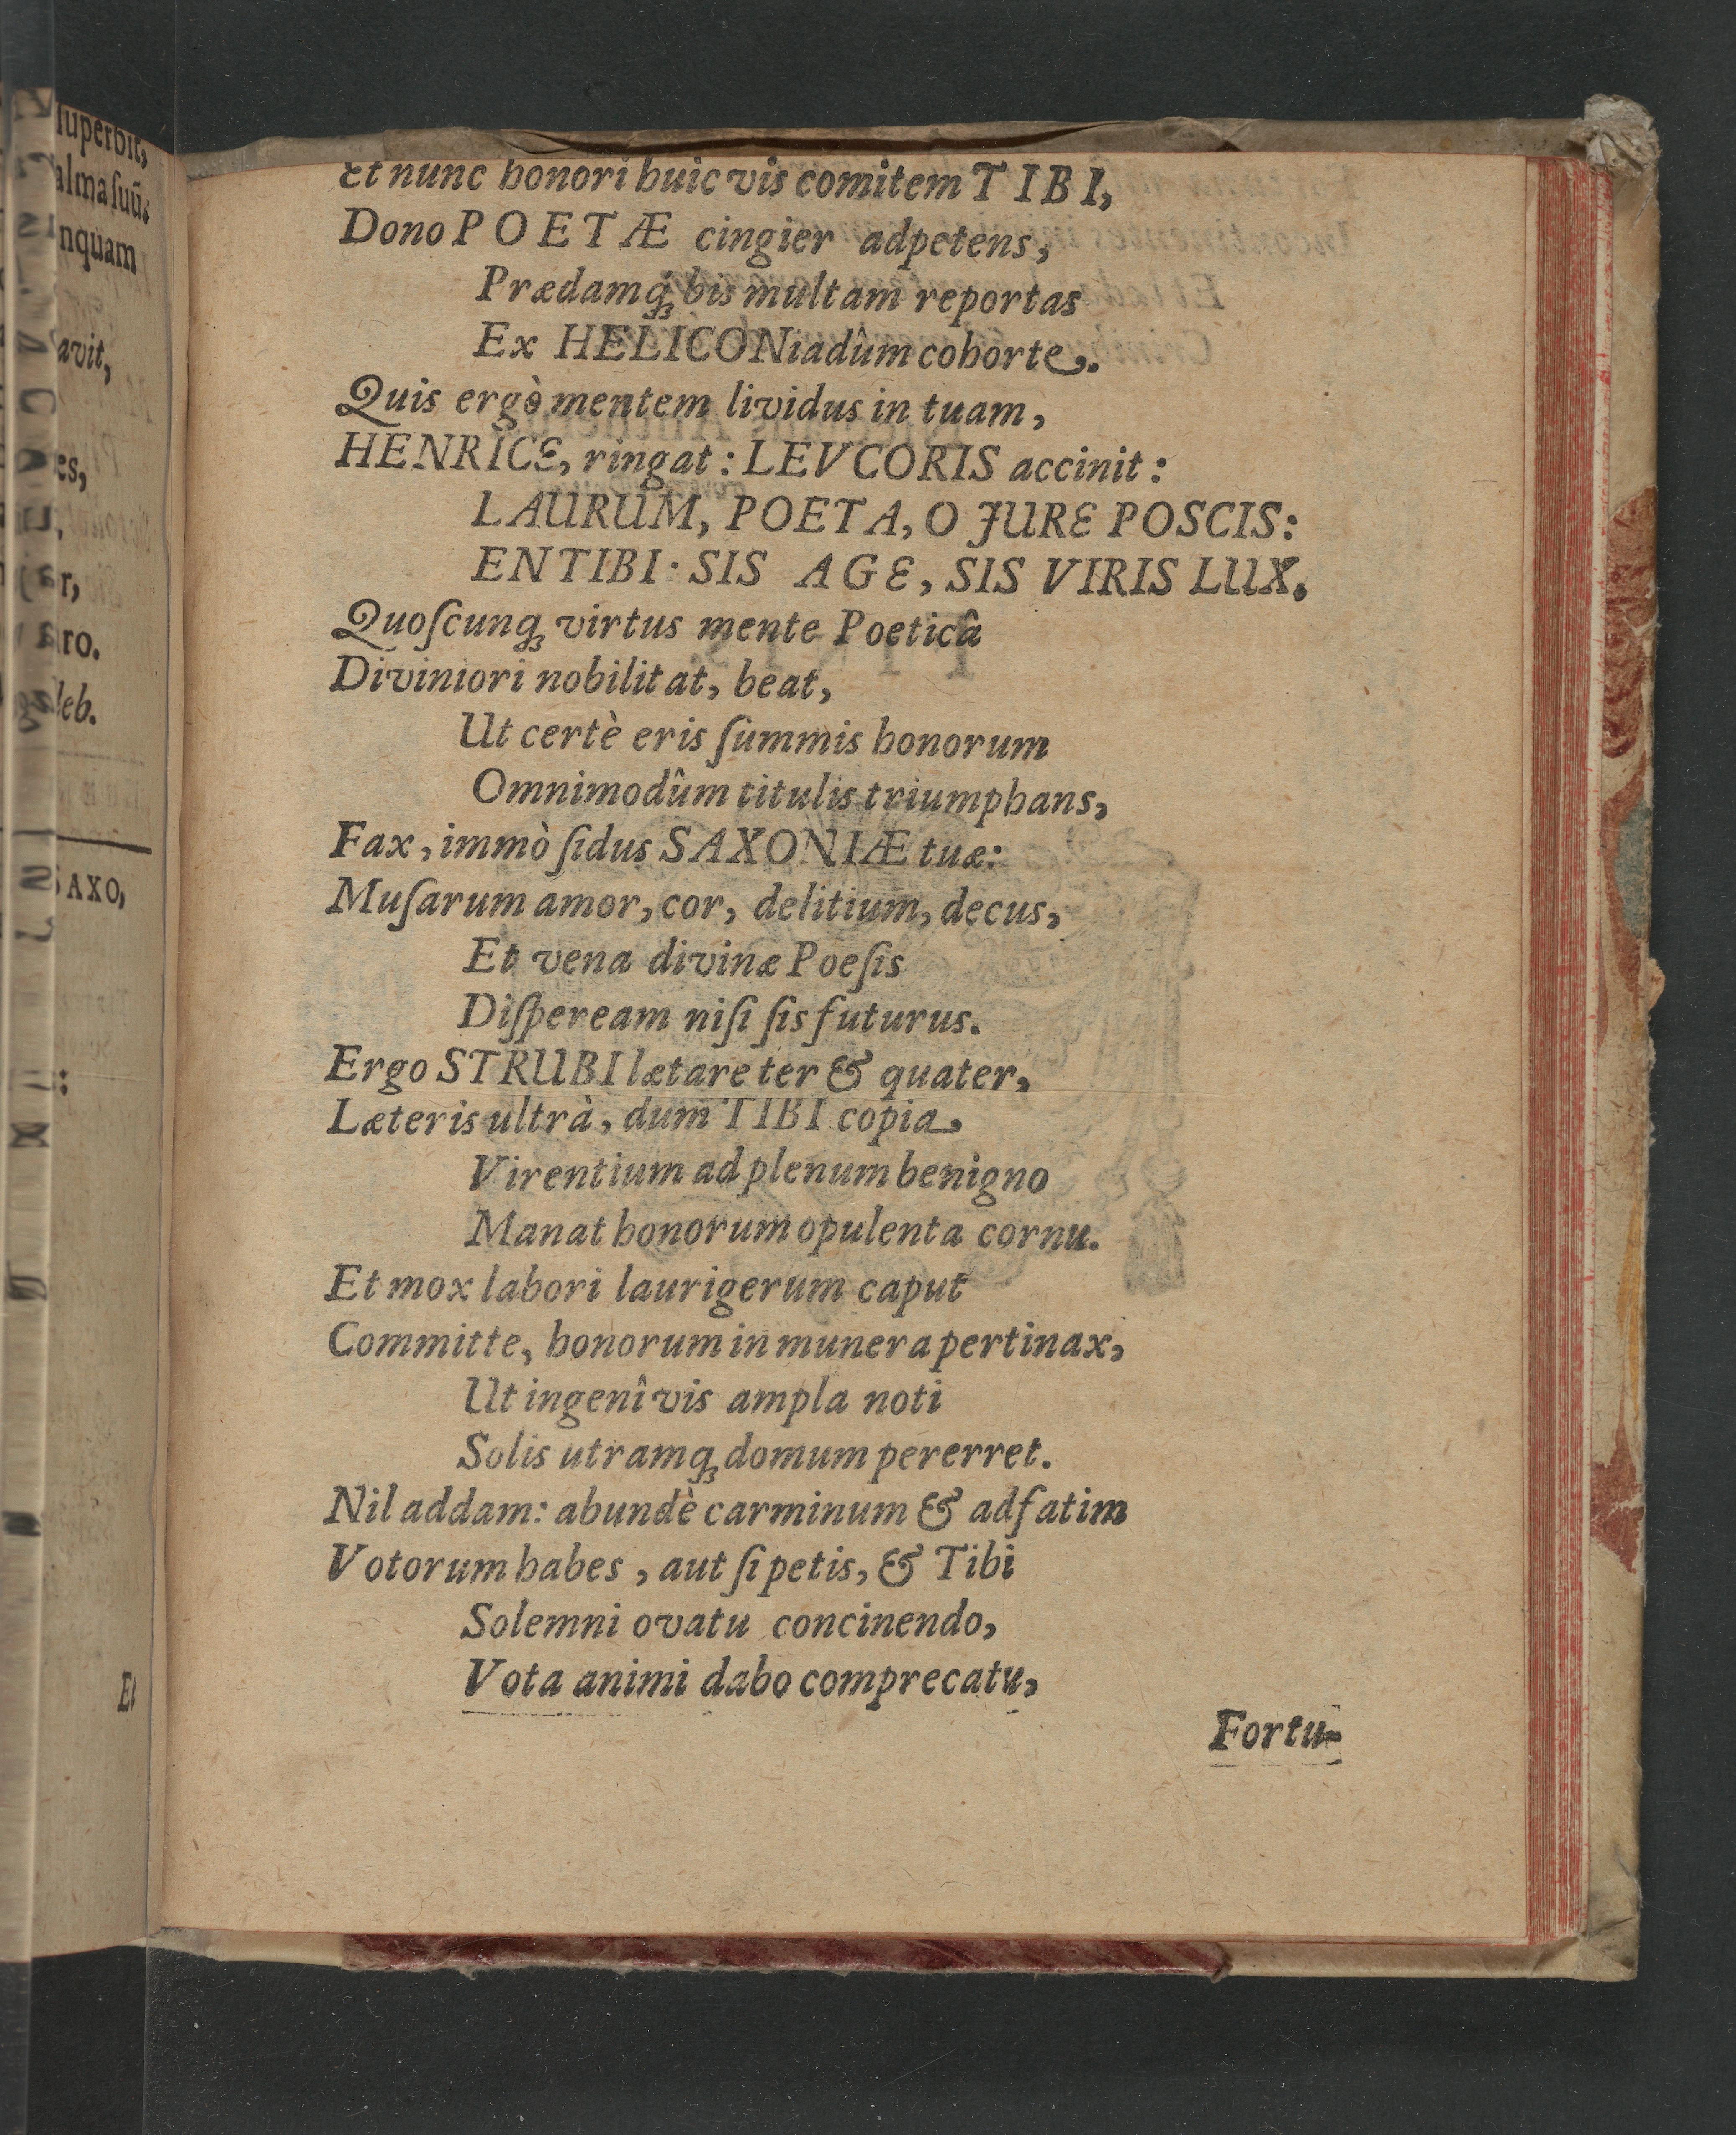 superbit,
alma suũ.
nquam
avit,
es,
r,
aro.
leb.
SAXO,
Et
Et nunc honori huic vis comitem TIBI,
Dono POETÆ cingier adpetens,
Prædamq́ꝫ his multam reportas
Ex HELICONiadûm cohorte.
Quis ergò mentem lividus in tuam,
HENRICE, ringat: LEVCORIS accinit:
LAURUM, POETA, O JURE POSCIS:
EN TIBI. SIS AGE, SIS VIRIS LUX.
Quoſcunqꝫ virtus mente Poeticâ
Diviniori nobilitat, beat,
Ut certè eris ſummis honorum
Omnimodûm titulis triumphans,
Fax, immò ſidus SAXONIÆ tuæ:
Muſarum amor, cor, delitium, decus,
Et vena divinæ Poeſis
Diſpeream niſi ſis futurus.
Ergo STRUBI lætare ter & quater,
Læteris ultrà, dum TIBI copia,
Virentium ad plenum benigno
Manat honorum opulenta cornu.
Et mox labori laurigerum caput
Committe, honorum in munera pertinax,
Ut ingenî vis ampla noti
Solis utramqꝫ domum pererret.
Nil addam: abundè carminum & adfatim
Votorum habes, aut ſi petis, & Tibi
Solemni ovatu concinendo,
Vota animi dabo comprecatu,
Fortu-